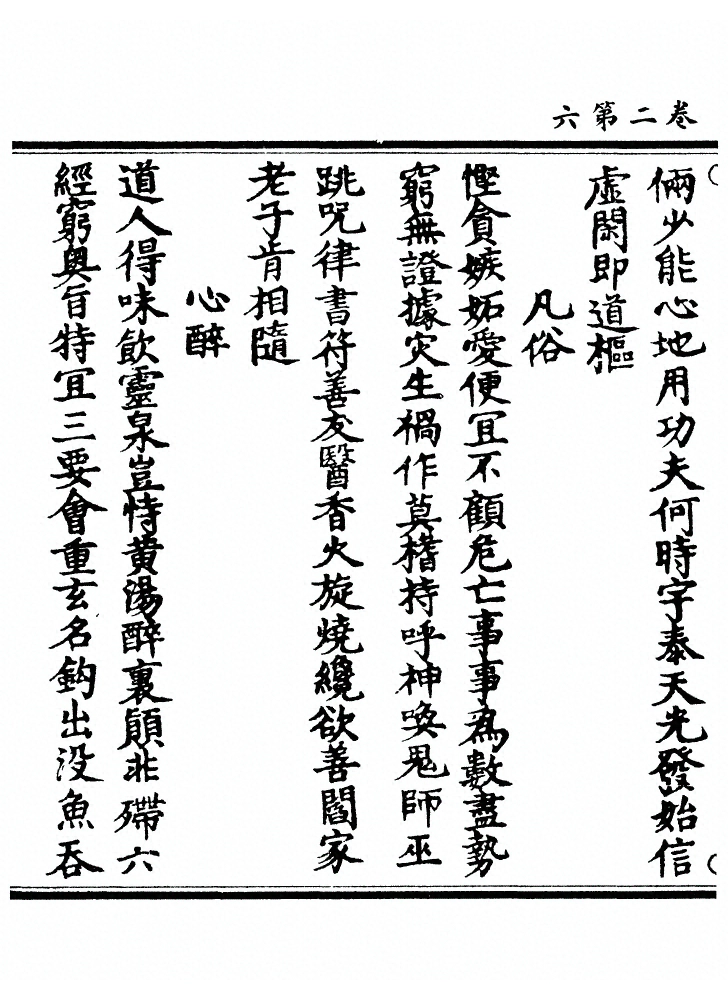 卷二第六
倆少能心地用功夫何時宇泰天光發始信
虛閑即道樞
凡俗
慳貪嫉妬愛便冝不顧危亡事事爲數盡勢
窮無證據灾生禍作莫稽持呼神喚鬼師巫
跳咒律書符善友醫香火旋燒纔欲善閻家
老子肯相隨
心醉
道人得味飲靈泉豈恃黄湯醉裏顛非殢六
經窮奥旨特冝三要會重玄名鈎出没魚吞